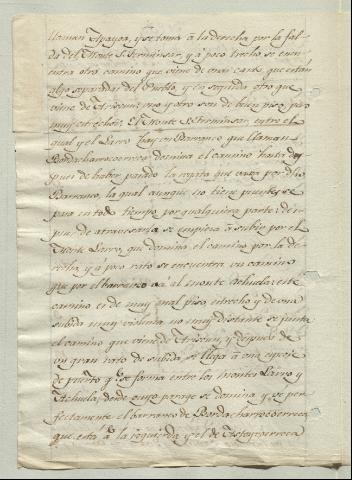 llaman Apayoa, y se toma á la derecha por la fal-
da del Monte S. Ferminsar, y á poco trecho se encu-
entra otro camino que viene de unas casas, que están
algo separadas del Pueblo, y en seguida otro que
viene de uno y otro son de buen piso, pero
muy estrechos. El Monte S. Ferminsar, entre el
qual y el Larro hay un Barranco que llaman
domina el camino hasta des-
pues de haber pasado la regata que corre por dho
Barranco, la qual aunque no tiene puente, se
pasa en todo tiempo por qualquiera parte; des-
pues de atravesarla se empieza á subir por el
Monte Larro, que domina el camino por la de-
recha, y á poco rato se encuentra un camino
que por el barranco vá al monte Achuela; este
camino es de muy mal piso, estrecho y de una
subida muy violenta, no muy distante se junta
el camino que viene de y despues de
un gran rato de subida se llega á una especie
de puerto q.e se forma entre los montes Larro y
Achuela, desde cuyo parage se domina y se ve per-
fectamente el barranco de
que está á la izquierda y el de